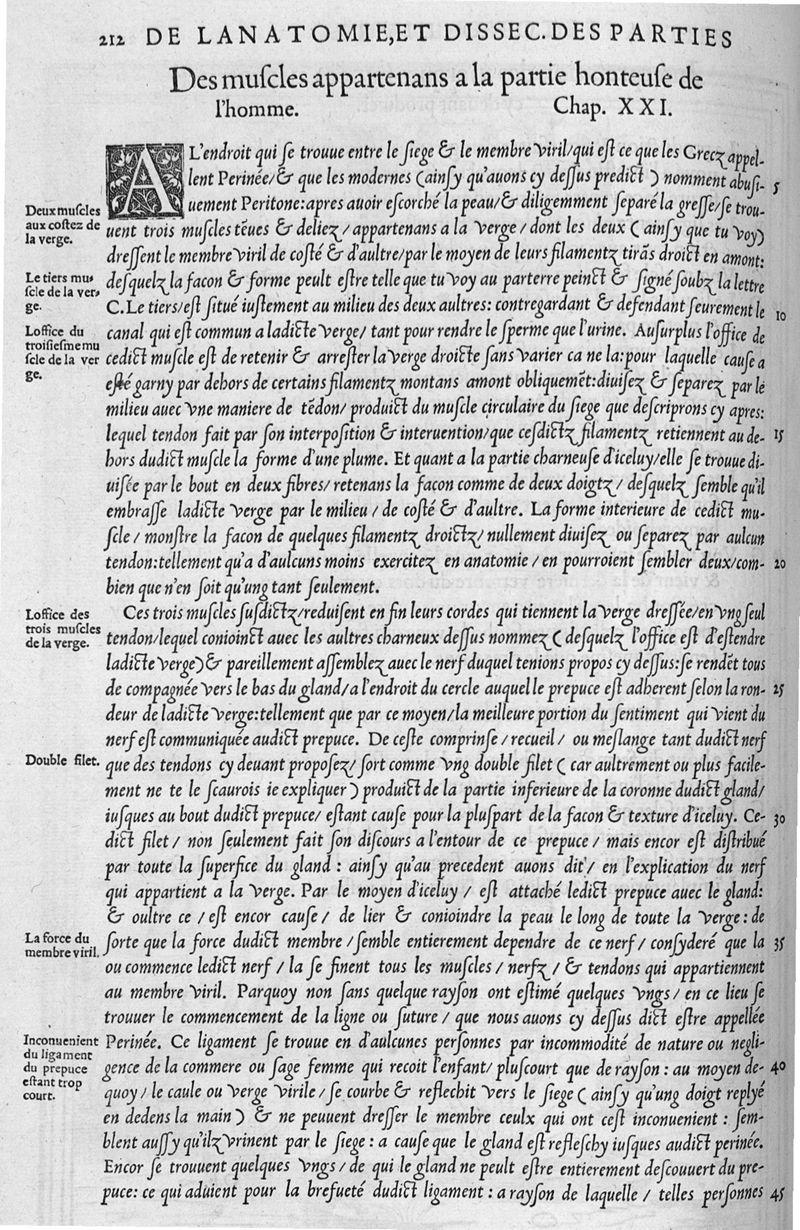 212 DE LANATOMIE, ET DISSEC. DES PARTIES
Des muſcles appartenans a la partie honteuſe de
l'homme. Chap. XXI.
AL'endroit qui ſe trouue entre le ſiege & le membre viril/qui eſt ce que les Grecz appel-
lent Perinée/& que les modernes (ainſy qu'auons cy deſſus predict) nomment abuſi-
5
uement Peritone:apres auoir eſcorché la peau/& diligemment ſeparé la greſſe/ſe trou-
Deux muſcles
aux coſtez de
la verge.
uent trois muſcles tēues & deliez/ appartenans a la verge/ dont les deux (ainſy que tu voy)
dreſſent le membre viril de coſté & d'aultre/par le moyen de leurs filamentz tirās droict en amont:
Le tiers mu-
ſcle de la ver-
ge.
deſquelz la facon & forme peult eſtre telle que tu voy au parterre peinct & ſigné ſoubz la lettre
C. Le tiers/eſt ſitué iuſtement au milieu des deux aultres: contregardant & defendant ſeurement le
10
Loffice du
troiſieſme mu
ſcle de la ver
ge.
canal qui eſt commun a ladicte verge/ tant pour rendre le ſperme que l'urine. Auſurplus l'office de
cedict muſcle eſt de retenir & arreſter la verge droicte ſans varier ca ne la:pour laquelle cauſe a
eſté garny par dehors de certains filamentz montans amont obliquemēt:diuiſez & ſeparez par le
milieu auec vne maniere de tēdon/ produict du muſcle circulaire du ſiege que deſcriprons cy apres:
lequel tendon fait par ſon interpoſition & interuention/que ceſdictz filamentz retiennent au de-
15
hors dudict muſcle la forme d'une plume. Et quant a la partie charneuſe d'iceluy/elle ſe trouue di-
uiſée par le bout en deux fibres/ retenans la facon comme de deux doigtz/ deſquelz ſemble qu'il
embraſſe ladicte verge par le milieu / de coſté & d'aultre. La forme interieure de cedict mu-
ſcle/ monſtre la facon de quelques filamentz droictz/ nullement diuiſez ou ſeparez par aulcun
tendon:tellement qu'a d'aulcuns moins exercitez en anatomie / en pourroient ſembler deux/com-
20
bien que n'en ſoit qu'ung tant ſeulement.
Loffice des
trois muſcles
de la verge.
Ces trois muſcles ſuſdictz/reduiſent en fin leurs cordes qui tiennent la verge dreſſée/en vng ſeul
tendon/lequel conioinct auec les aultres charneux deſſus nommez (deſquelz l'office eſt d'eſtendre
ladicte verge) & pareillement aſſemblez auec le nerf duquel tenions propos cy deſſus:ſe rendēt tous
de compagnée vers le bas du gland/a l'endroit du cercle auquel le prepuce eſt adherent ſelon la ron-
25
deur de ladicte verge:tellement que par ce moyen/la meilleure portion du ſentiment qui vient du
nerf eſt communiquée audict prepuce. De ceſte comprinſe/ recueil/ ou meſlange tant dudict nerf
Double filet.
que des tendons cy deuant propoſez/ ſort comme vng double filet (car aultrement ou plus facile-
ment ne te le ſcaurois ie expliquer) produict de la partie inferieure de la coronne dudict gland/
iuſques au bout dudict prepuce/ eſtant cauſe pour la pluſpart de la facon & texture d'iceluy. Ce-
30
dict filet / non ſeulement fait ſon diſcours a l'entour de ce prepuce / mais encor eſt diſtribué
par toute la ſuperfice du gland : ainſy qu'au precedent auons dit / en l'explication du nerf
qui appartient a la verge. Par le moyen d'iceluy / eſt attaché ledict prepuce auec le gland:
& oultre ce / eſt encor cauſe / de lier & conioindre la peau le long de toute la verge : de
La force du
membre viril.
ſorte que la force dudict membre / ſemble entierement dependre de ce nerf / conſyderé que la
35
ou commence ledict nerf / la ſe finent tous les muſcles / nerfz / & tendons qui appartiennent
au membre viril. Parquoy non ſans quelque rayſon ont eſtimé quelques vngs / en ce lieu ſe
trouuer le commencement de la ligne ou ſuture / que nous auons cy deſſus dict eſtre appellée
Inconuenient
du ligament
du prepuce
eſtant trop
court.
Perinée. Ce ligament ſe trouue en d'aulcunes perſonnes par incommodité de nature ou negli-
gence de la commere ou ſage femme qui recoit l'enfant/ pluſcourt que de rayſon : au moyen de-
40
quoy / le caule ou verge virile / ſe courbe & reflechit vers le ſiege (ainſy qu'ung doigt replyé
en dedens la main) & ne peuuent dreſſer le membre ceulx qui ont ceſt inconuenient : ſem-
blent auſſy qu'ilz vrinent par le ſiege : a cauſe que le gland eſt refleſchy iuſques audict perinée.
Encor ſe trouuent quelques vngs / de qui le gland ne peult eſtre entierement deſcouuert du pre-
puce: ce qui aduient pour la brefueté dudict ligament : a rayſon de laquelle / telles perſonnes
45